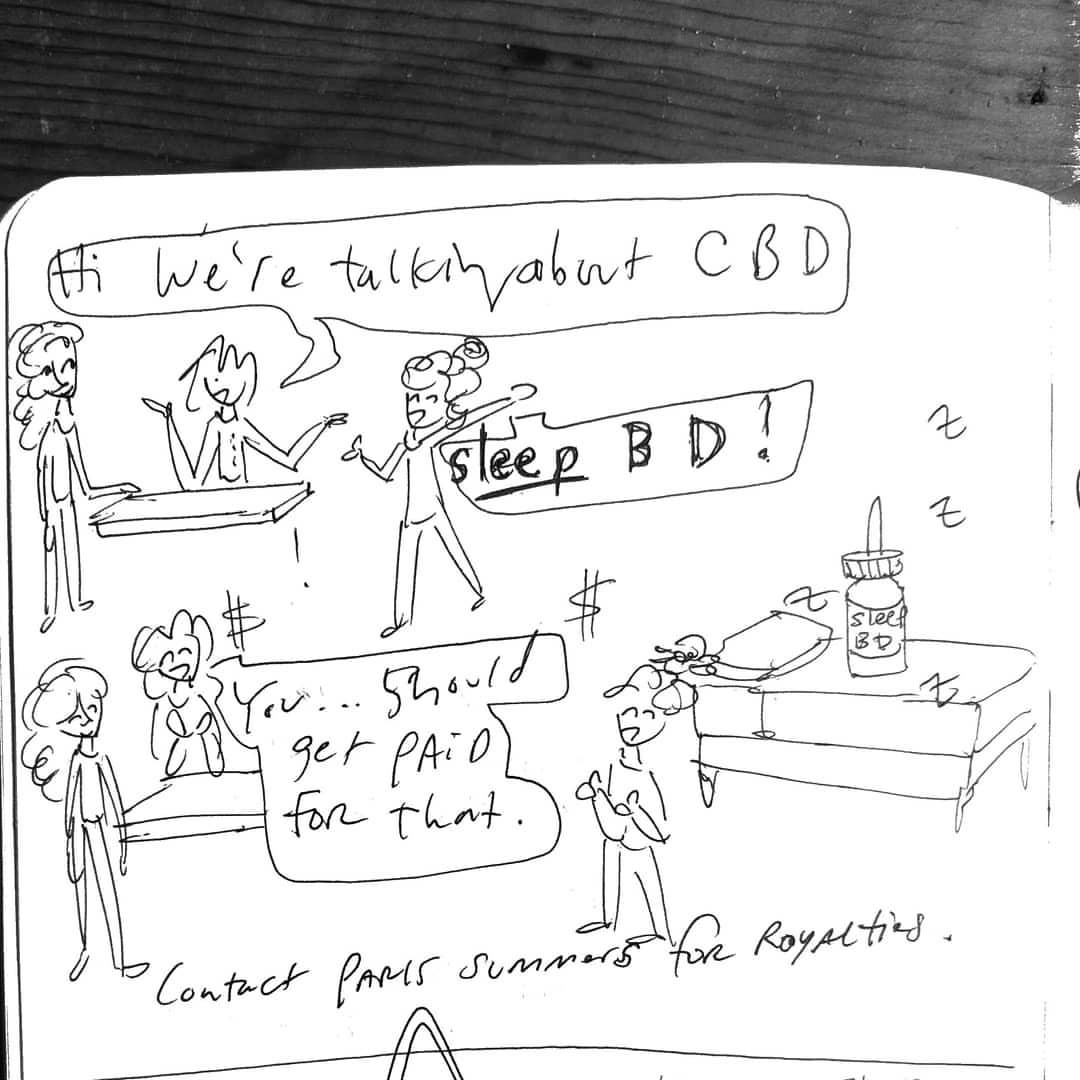 Hi We're talkin about CBD
sleep BD!
!
$
$
You... Should
get PAiD
for that.
z
z
z
z
sleep
BD
Contact PARIS Summers for Royalties.